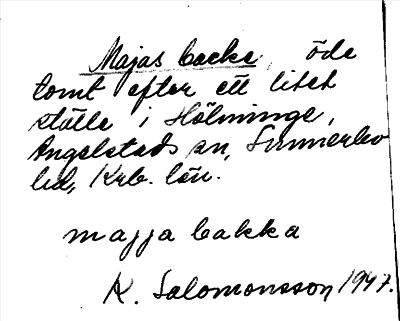 Majas backe, öde
tomt efter ett litet
ställe i Hölminge,
Angelstads sn, Sunnerbo
hd, Krb. län.
majja bakka
K. Salomonsson 1947.